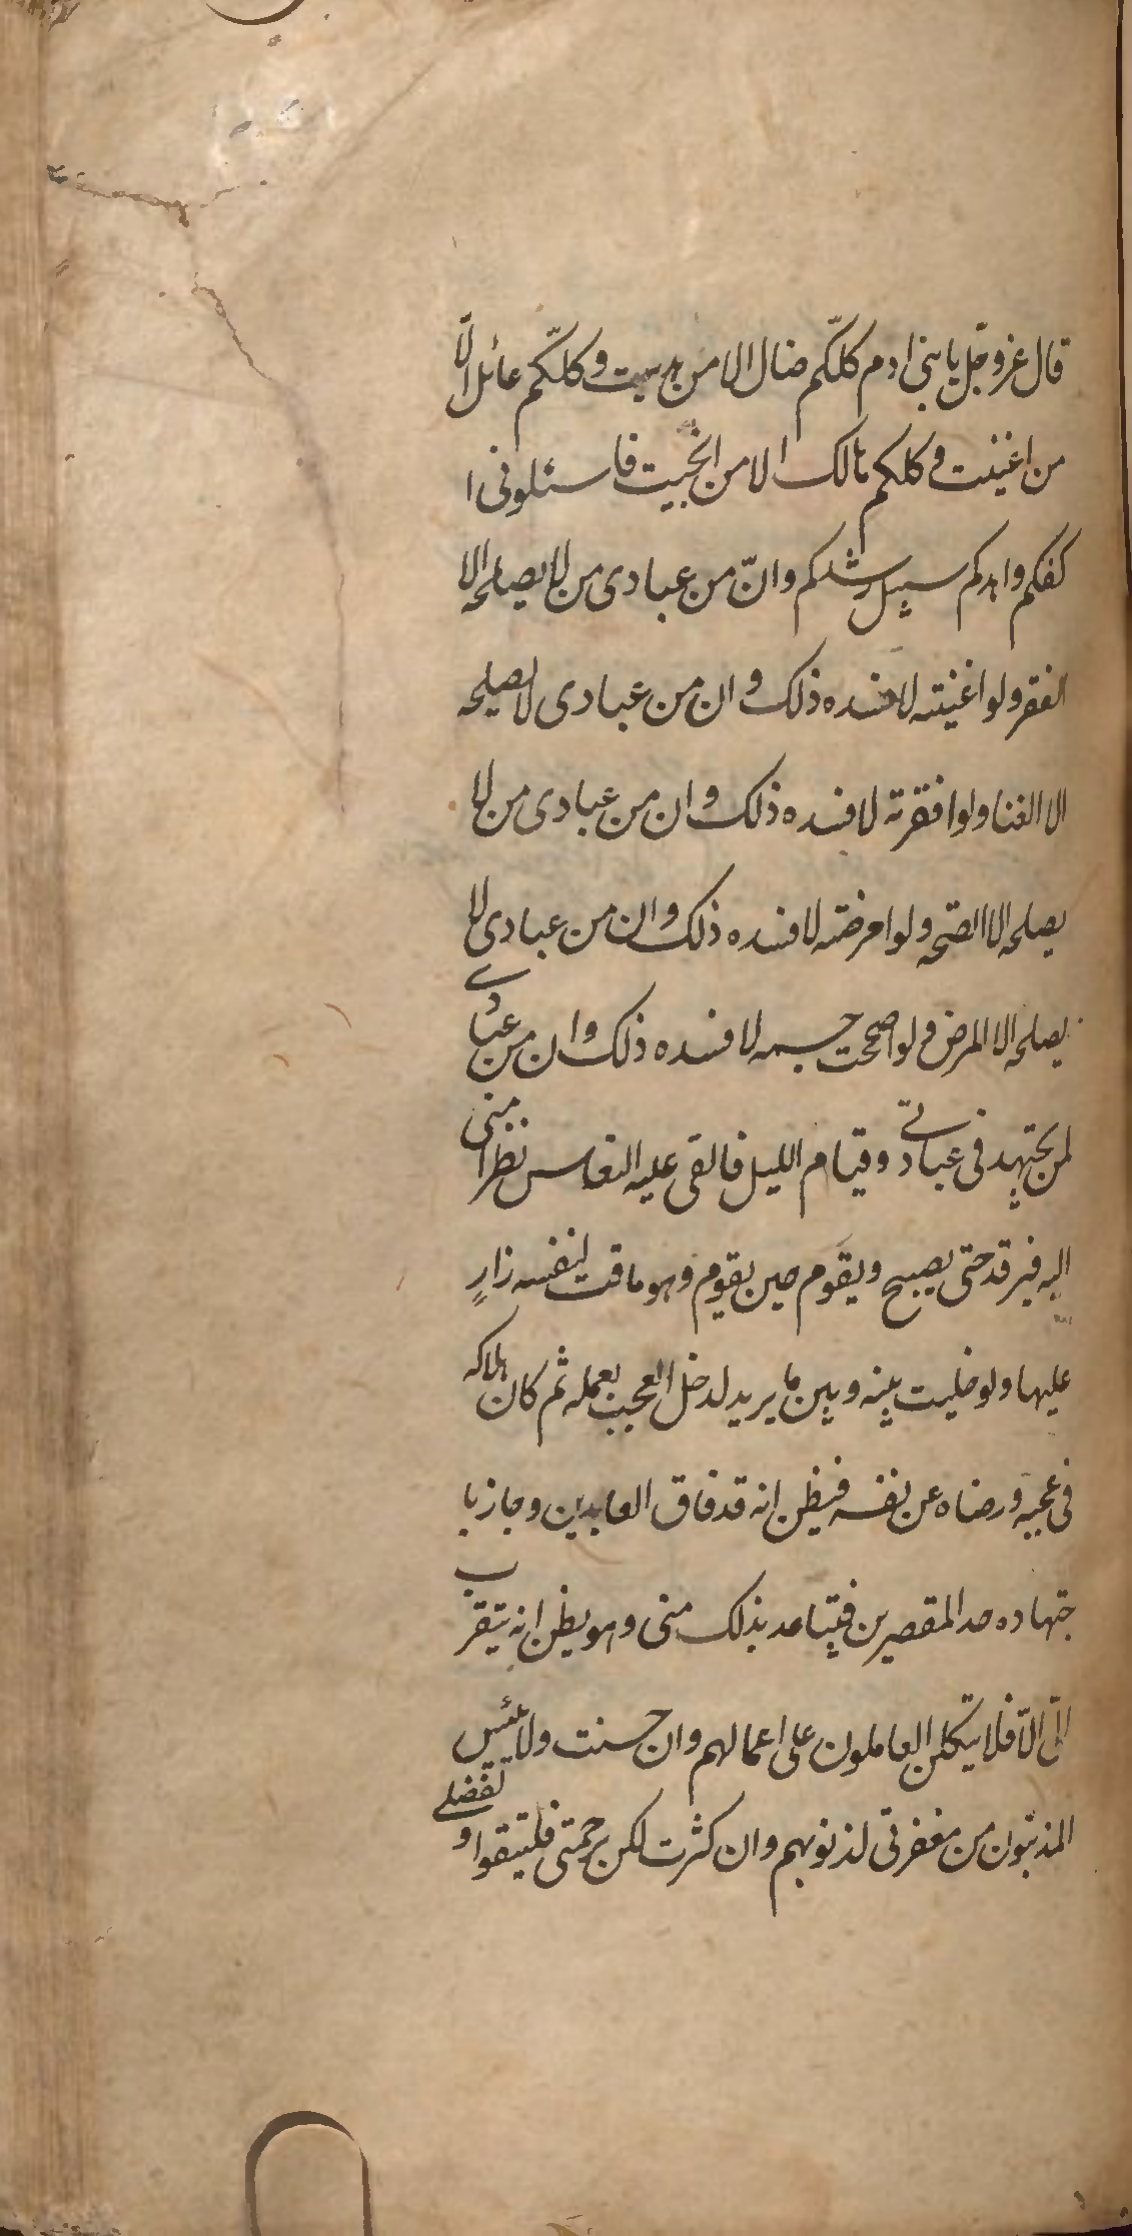 قال عز وجل يا بنى ادم كلّكم ضال الا من هديت و كلّكم عائل الّا
من اغنيت و كلكم هالك الا من انجيت فاسئلونى ا
كفكم واهدكم سبيل رشدكم وانّ من عبادى من لا يصلحه الا
الفقر ولو اغنيته لافسده ذلك و ان من عبادى لا يصلحه
الا الغنا ولو افقرته لافسده ذلك وان من عبادى من لا
يصلحه الا الصّحه ولو امرضته لافسده ذلك وان من عبادى لا
يصلحه الا المرض و لو اصححت جسمه لافسده ذلك وان من عبادى
لمن يجتهد فى عبادتى وقيام الليل فالقى عليه النعاس نظرا منى
اليه فيرقد حتى يصبح ويقوم حين يقوم وهو ماقت لنفسه زارٍ
عليها ولو خليت بينه وبين ما يريد لدخل العجب بعمله ثم كان هلاكه
فى عجبه ورضاه عن نفسه فيظن انه قد فاق العابدين وجاز با
جتهاده حد المقصرين فيتباعد بذلك منى وهو يظن انه يتقرب
الىّ الّا فلا يتكلن العاملون على اعمالهم وان حسنت ولا يئس
المذنبون من مغفرتى لذنوبهم وان كثرت لكن برحمتى فليتقوا و تفضلى